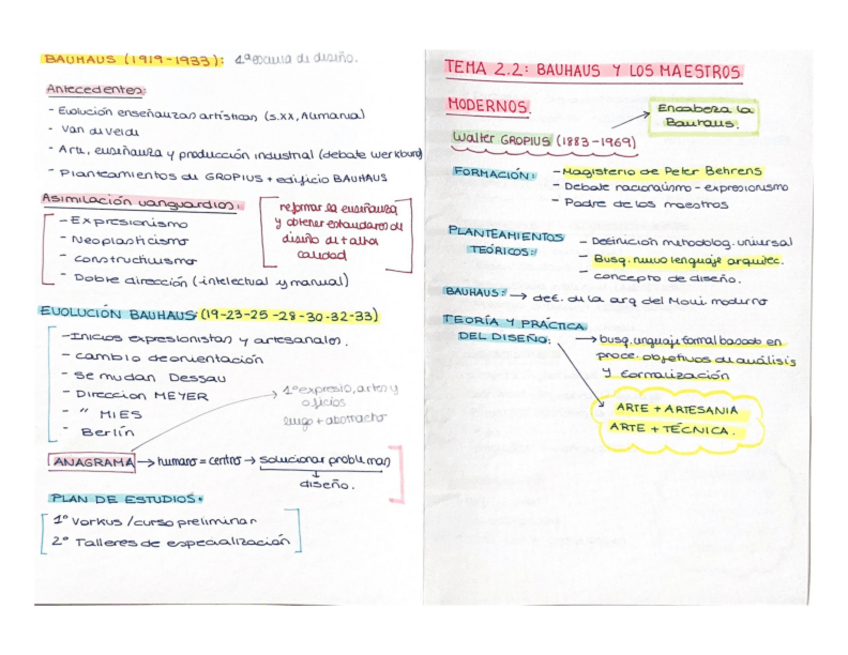 BAUHAUS (1919-1933): 1ª escuela de diseño.
Antecedentes:
- Evolución enseñanzas artísticas (s.XX, Alemania)
- Van de Velde
- Arte, enseñanza y producción industrial (debate werkbund)
- Planteamientos de GROPIUS + edificio BAUHAUS
Asimilación vanguardias:
- Expresionismo
- Neoplasticismo
- Constructivismo
- Doble dirección (-intelectual y manual)
reformar la enseñanza
y obtener estandares de
diseño de + alta
calidad
EVOLUCIÓN BAUHAUS: (19-23-25-28-30-32-33)
- Inicios expresionistas y artesanales.
- Cambio de orientación
- Se mudan Dessau
- Direccion MEYER
- " MIES
- Berlín
1º expresio, artes y
oficios
luego + abstracto
ANAGRAMA → humano = centro → solucionar problemas
↓
diseño.
PLAN DE ESTUDIOS.
1º Vorkus / curso preliminar
2º Talleres de especialización
TEMA 2.2: BAUHAUS Y LOS MAESTROS
MODERNOS.
Encabeza la
Bauhaus.
Walter GROPIUS (1883-1969)
FORMACIÓN: - Magisterio de Peter Behrens
- Debate racionalismo - expresionismo
- Padre de los maestros
PLANTEAMIENTOS
TEÓRICOS:
- Definición metodolog. universal
- Busq. nuevo lenguaje arquitec.
- Concepto de diseño.
BAUHAUS: → def. de la arq del Movi moderno
TEORÍA Y PRÁCTICA
DEL DISEÑO: → busq. lenguaje formal basado en
proce. objetivos de análisis
y formalización
ARTE + ARTESANIA
ARTE + TÉCNICA.